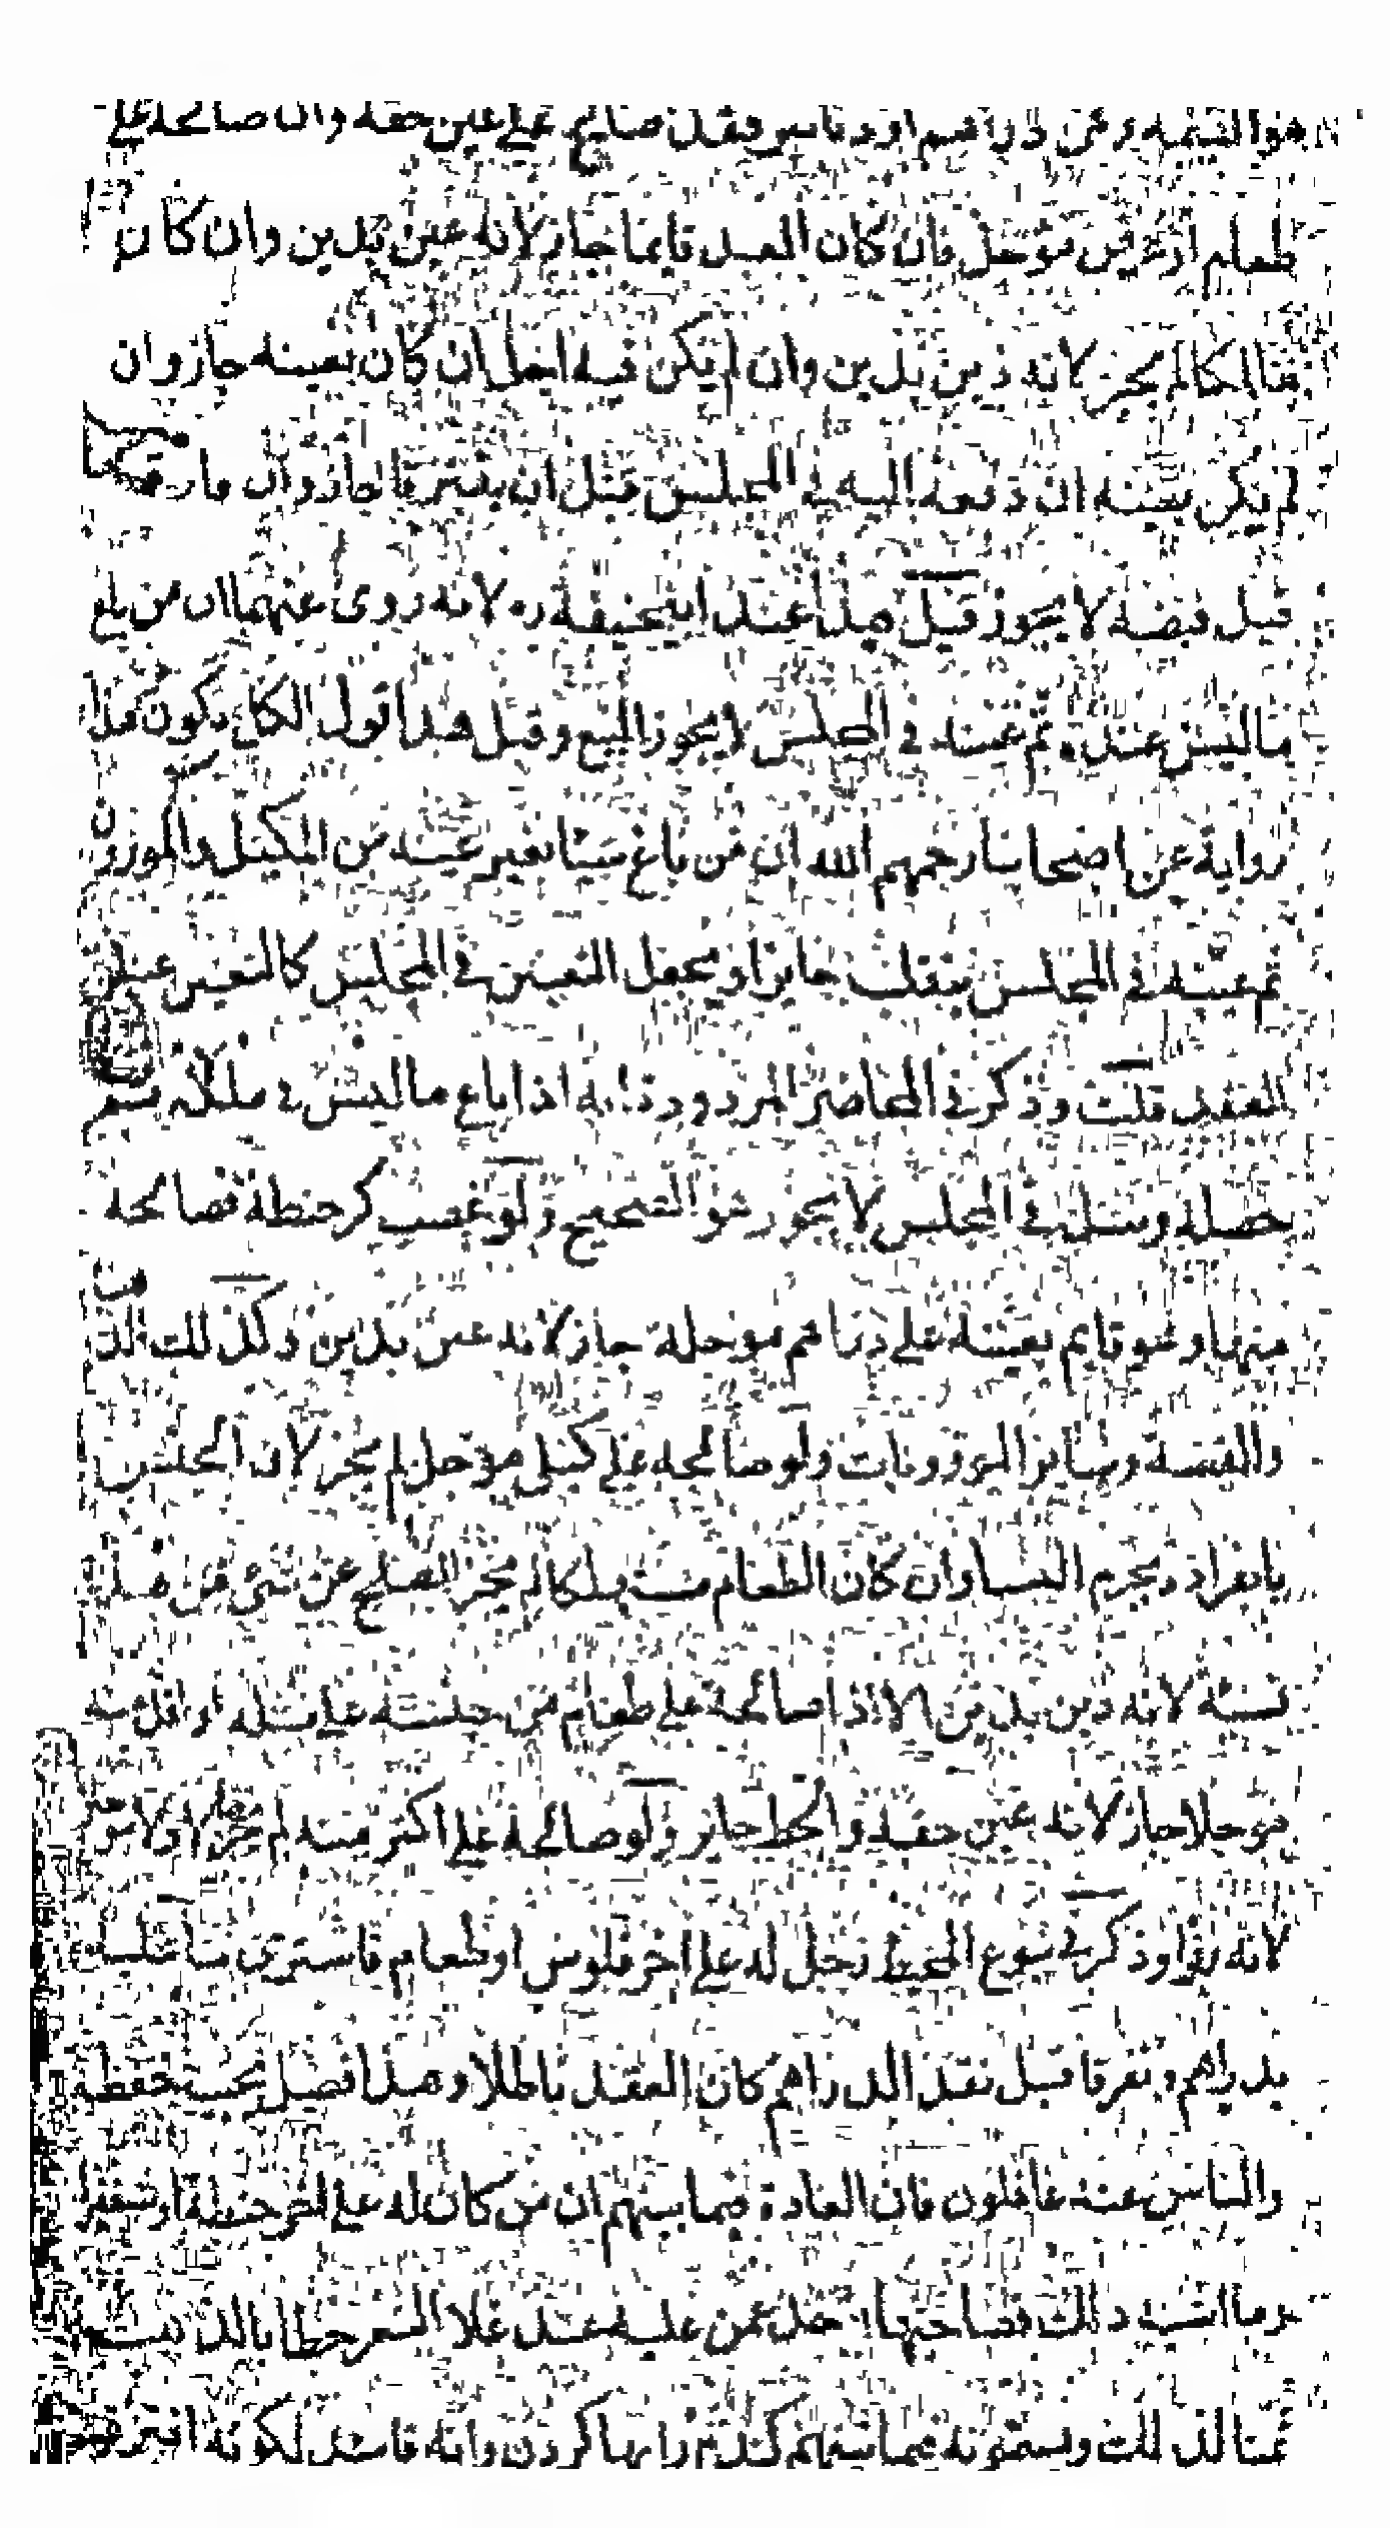 هو القيمة وهى دراهم او دنانير فقد صالح على عين حقه وان صالحه على
طعام او عرض موجل فان كان العبد قايما جاز لانه عين بدين وان كان
هالكا لم يجز لانه دين بدين وان لم يكن فيه اجل ان كان بعينه جاز وان
لم يكن بعينه ان دفعه اليه في المجلس قبل ان يفترقا جاز وان فارقه
قبل قبضه لا يجوز قيل هذا عند ابيحنيفة ره لانه روى عنهما ان من باع
ما ليس عنده ثم عينه في المجلس لا يجوز البيع وقيل هذا قول الكل يكون هذا
رواية عن اصحابنا رحمهم الله ان من باع شيا بغير عينه من المكيل والموزون
ثم عينه في المجلس ينقلب جايزا ويجعل التعيين في المجلس كالتعيين عند
العقد قلت وذكر في المحاضر المردودة انه اذا باع ما ليس في ملكه ثم
حصله وسلم في المجلس لا يجوز هو الصحيح ولو غصب كر حنطة فصالحه
منها وهو قايم بعينه على دراهم موجلة جاز لانه عين بدين وكذلك الذهب
والفضة وساير الموزونات ولو صالحه على كيل موجل لم يجز لان الجنس
بانفراده يحرم النسا وان كان الطعام مستهلكا لم يجز الصلح عن شئ من هذا
نسئة لانه دين بدين الا اذا صالحه على طعام من جنسه على مثله او اقل منه
موجلا جاز لانه عين حقه والحط جايز ولو صالحه على اكثر منه لم يجز
لانه ربوا وذكر في بيوع المحيط رجل له على اخر فلوس او طعام فاشترى ما عليه
بدراهم وتفرقا قبل نقد الدراهم كان العقد باطلا وهذا فصل يجب حفظه
والناس عنه غافلون فان العادة فيما بينهم ان من كان له على اخر حنطة او شعير
وما اشبه ذلك فصاحبها ياخذ ممن عليه عند غلا السعر خطا بالدنانير
ثمنا لذلك ويسمونه فيما بينهم كندم رابها كردن وانه فاسد لكونه افتراقا